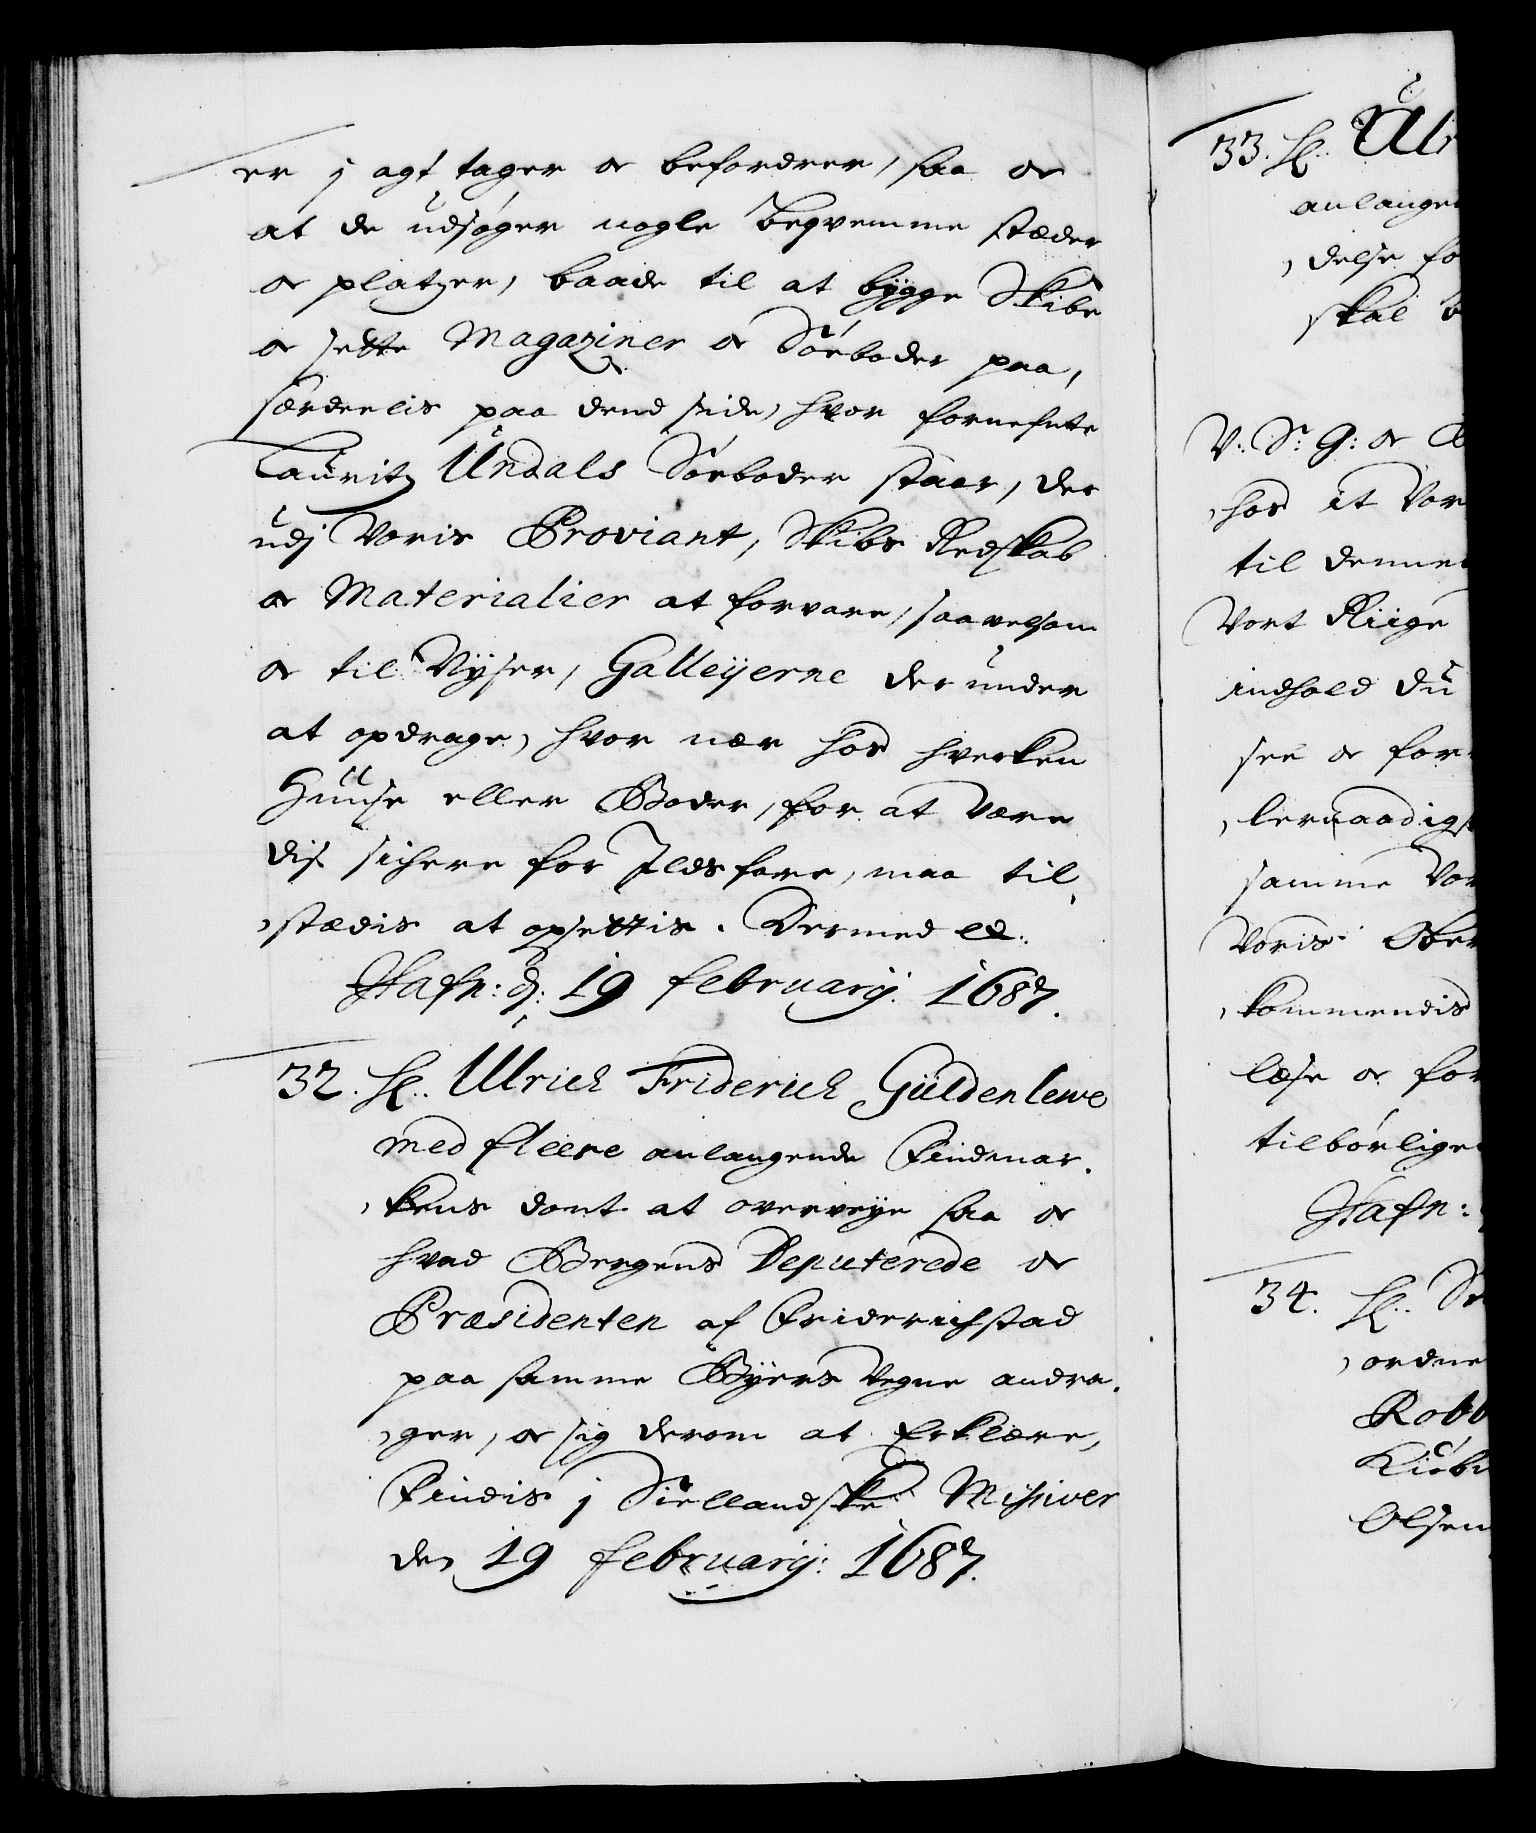 er j agt tager oc befordrer, saa oc
at de udsøger nogle beqvemme stæder
oc platzer, baade til at bÿgge Skibe
oc sette Magaziner oc Søeboder paa,
særdeelis paa dend side, hvor fornefnte
Lauritz Undals Søeboder staar, der
udj Voris Proviant, Skibs Redskab
oc Materialier at forvare, saavelsom
oc til Nÿser, Galleÿerne der under
at opdrage, hvor nær hos hverken
Huuse eller Boder, for at være
dis sichere for Ildsfare, maa til,
,stædis at opsettis. Dermed etc:
Hafn: d: 19 februarij 1687.
32. H. Ulrich Friderich Güldenlewe
med fleere anlangende Findmar,
,kens dont at overveÿe saa oc
hvad Bergens Deputerede oc
Præsidenten af Friderichstad
paa samme Bÿers Vegne andra,
,ger, oc sig derom at Erklære,
Findis j Siellandske Missiver
den 19 februarij: 1687.
33. H. Ul
anlange
,delse fo
skal
V: S: G: oc
,hos it Vor
til denne
Vort Riige
indhold du
see oc for
,lernaadigs
samme Vor
Voris Ober
,kommendis
læse oc for
tilbørlige
Hafn:
34. H. S
,ordne
Robb
Kiøb
Olsen